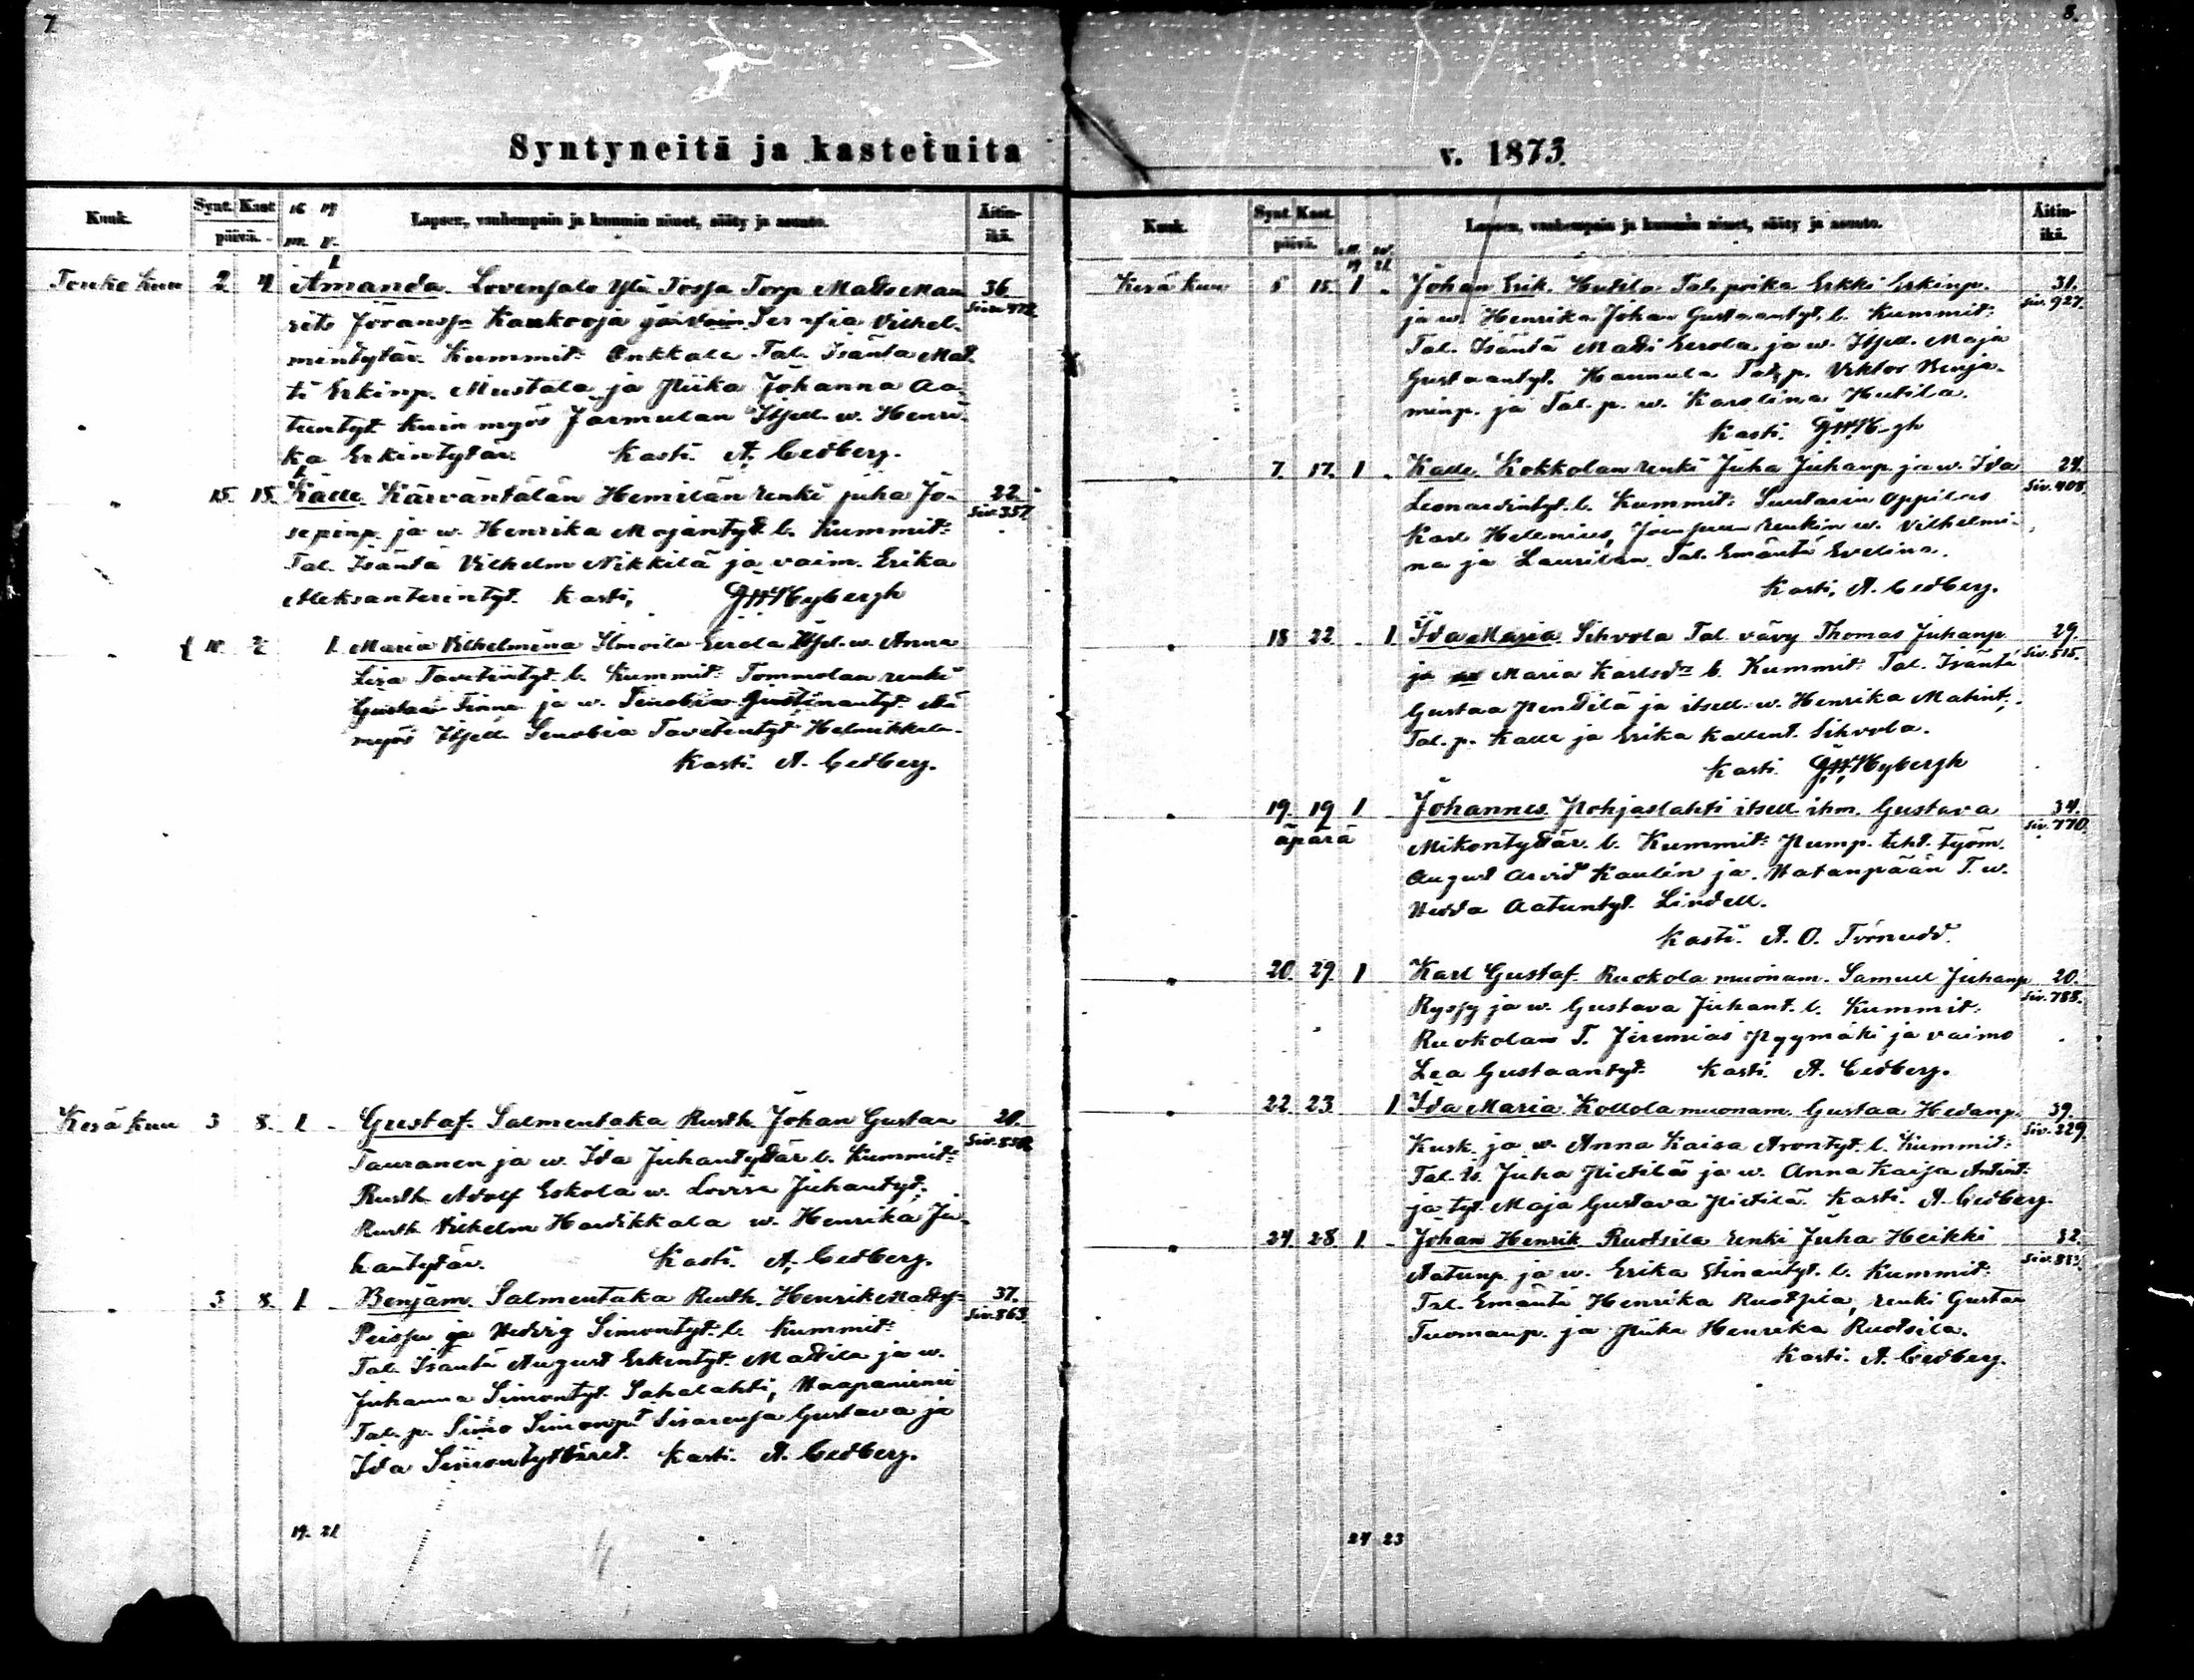 7.
Syntyneitä ja kastetuita
Kuuk. Synt. Kast. päivä. 16 19 m. v. Lapsen, vanhempain ja kummin nimet, sääty ja asunto. Äitin-ikä.
Touko kuu 2 4 1 Amanda. Lovensalo Yli Torp Matts Mau 36.
rits Göransp. Kaukooja ja Vaim Serafia Vilhel- Siv. 472
mintytär. Kummit: Onkkala Tal. Isäntä Mat
ti Erkinp. Mustala ja Piika Johanna Aa-
tuntyt. kuin myös Jarmulan Itsell. w. Henri-
ka Erkintytär. Kasti. A. Cedberg.
" 15. 18. 1 Kalle. Kärväntälän Hemilän renki Juha Jo- 22.
sepinp. ja w. Henrika Majantyt. l. Kummit: Siv. 357
Tal. Isäntä Vilhelm Nikkilä ja vaim. Erika
Aleksanterintyt. Kasti, G W Nybergh
" 1 Maria Vilhelmina Ilmoila Eerola Itsel. w. Anna
Lisa Tavetintyt. l. Kummit: Tommolan renki
Gustaa Finne ja w. Senobia Gustinantyt. etä
myös Itsell. Senobia Tavetintyt Helmikkala.
Kasti. A. Cedberg.
Kesä kuu 3 8. 1 - Gustaf. Salmentaka Rusth. Johan Gustaa
Tauranen ja w. Ida Juhantytär l. Kummit:
Rusth. Adolf Eskola w. Lovisa Juhantyt.
Rusth. Vilhelm Hardikkala w. Henrika Ju-
hantytär. Kasti. A. Cedberg.
" 3 8. 1 - Benjam. Salmentaka Rusth. Henrik Matsp. 37.
ja Hedvig Simontyt. l. Kummit: Siv. 863
Tal. Isäntä August Erkintyt. Mattila ja w.
Juhanna Simontyt. Sahalahti, Haapaniemi
Tal. p. Simo Simonp. Sisarensa Gustava ja
Ida Simontyttäret. Kasti. A. Cedberg.
19. 21
8.
v. 1873.
Kuuk. Synt. Kast. päivä. 19 21 Lapsen, vanhempain ja kummin nimet, sääty ja asunto. Äitin-ikä.
Kesä kuu 5 15. 1 - Johan Erik. Hutila Tal. poika Erkki Erkinp. 31.
ja w. Henrika Johan Gustaantyt. l. Kummit: Siv. 927.
Tal. Isäntä Matti Eerola ja w. Itsell. Maja
Gustaantyt. Hannula Tal. p. Viktor Benja-
minp. ja Tal. p. w. Karolina Hutila.
Kasti.
" 7. 17. 1 - Kalle. Kokkolan renki Juha Juhanp. ja w. Ida 24.
Leonardintyt. l. Kummit: Suutarin Oppilas Siv. 408
Karl Helenius, Joenpuun renkin w. Vilhelmi-
na ja Laurilan Tal. Emäntä Evelina.
Kasti, A. Cedberg.
" 18 22 - 1. Ida Maria. Sihvola Tal. vävy Thomas Juhanp. 29.
ja w Maria Karlsdr. l. Kummit: Tal. Isäntä Siv. 515.
Gustaa Penttilä ja itsell. w. Henrika Matint.
Tal. p. Kalle ja Erika Kallent. Sihvola.
Kasti. G W Nybergh
" 19. 19 1 Johannes. Pohjaslahti itsell. ihm. Gustava 34.
äpärä Mikontytär l. Kummit: Pump. teht. työm. Siv. 770.
August Arvid Kaulin ja Hatanpään T. w.
Hedda Aatuntyt. Lindell.
Kasti. A. O. Törnudd.
" 20. 29. 1 Karl Gustaf. Ruokola muonam. Samuel Juhanp. 20.
Ryssy ja w. Gustava Juhant. l. Kummit: Siv. 788.
Ruokolan T. Jeremias Pyymäki ja vaimo
Lea Gustaantyt. Kasti. A. Cedberg.
" 22. 23 1. Ida Maria. Kollola muonam. Gustaa Hedanp. 39.
Kusk. ja w. Anna Kaisa Arontyt. l. Kummit: Siv. 329
Tal. Is. Juha Pietilä ja w. Anna Kaisa Antint.
ja tyt. Maja Gustava Pietilä. Kasti. A. Cedberg.
" 24. 28. 1. - Johan Henrik. Ruotsila renki Juha Heikki 32.
Aatunp. ja w. Erika Stinantyt. l. Kummit:
Tal. Emäntä Henrika Ruotsila, renki Gustaa
Tuomanp. ja Piika Henrika Ruotsila.
Kasti. A. Cedberg.
24 23